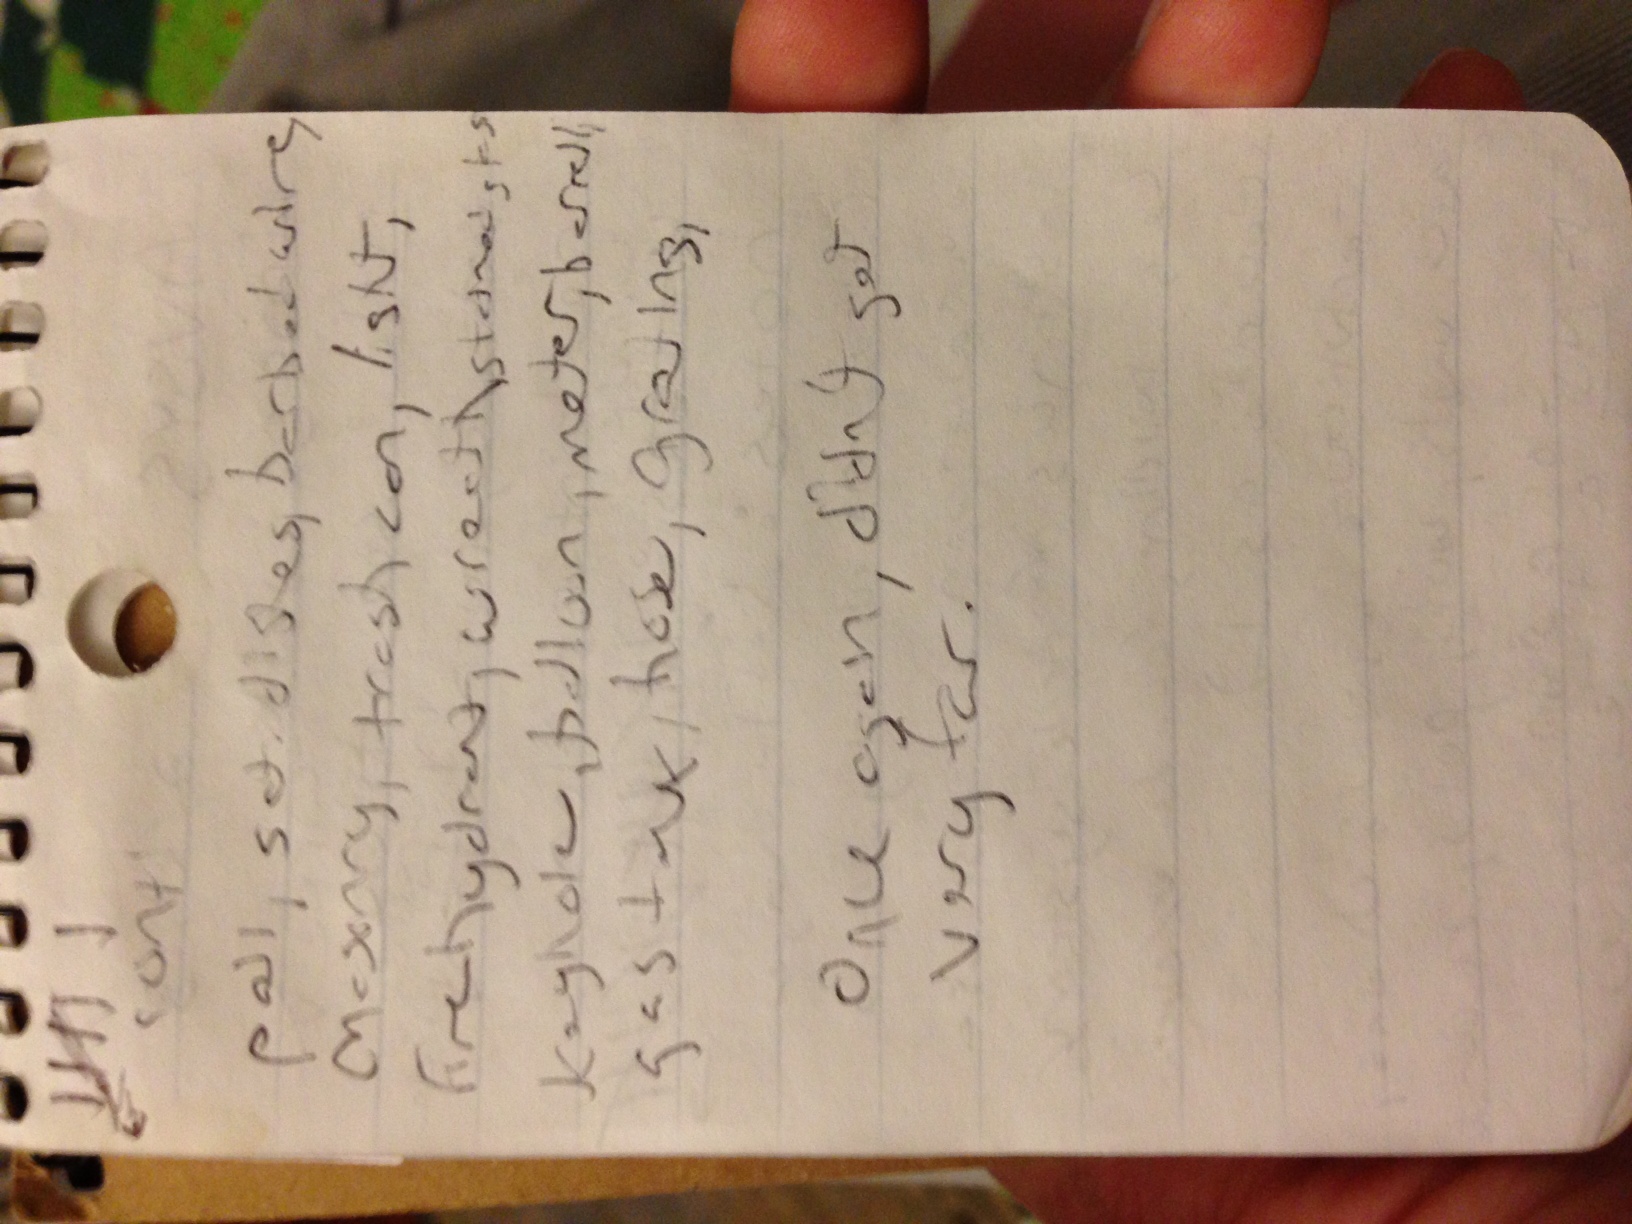 cont'
pail, sat. dishes, barbed wire,
masonry, trash can, light,
fire hydrant, wreath, stained gls
keyhole, balloon, meter, barrell,
gas tank, hose, grating,
Once again, didn't get
very far.